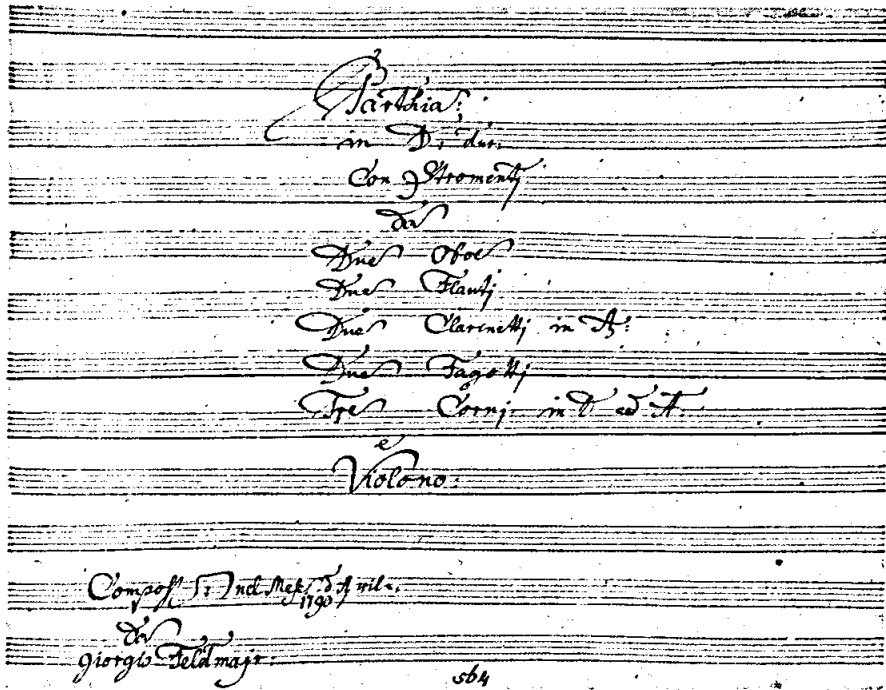 Parthia:
in D: dur:
Con Stromentj
da
Due Oboe
Due Flautj
Due Clarinettj in A:
Due Fagottj
Tre Cornj in D ed A.
e
Violono:
nel Mese d'Aprile.
1790
da
Giorgio Feldmajr:
564